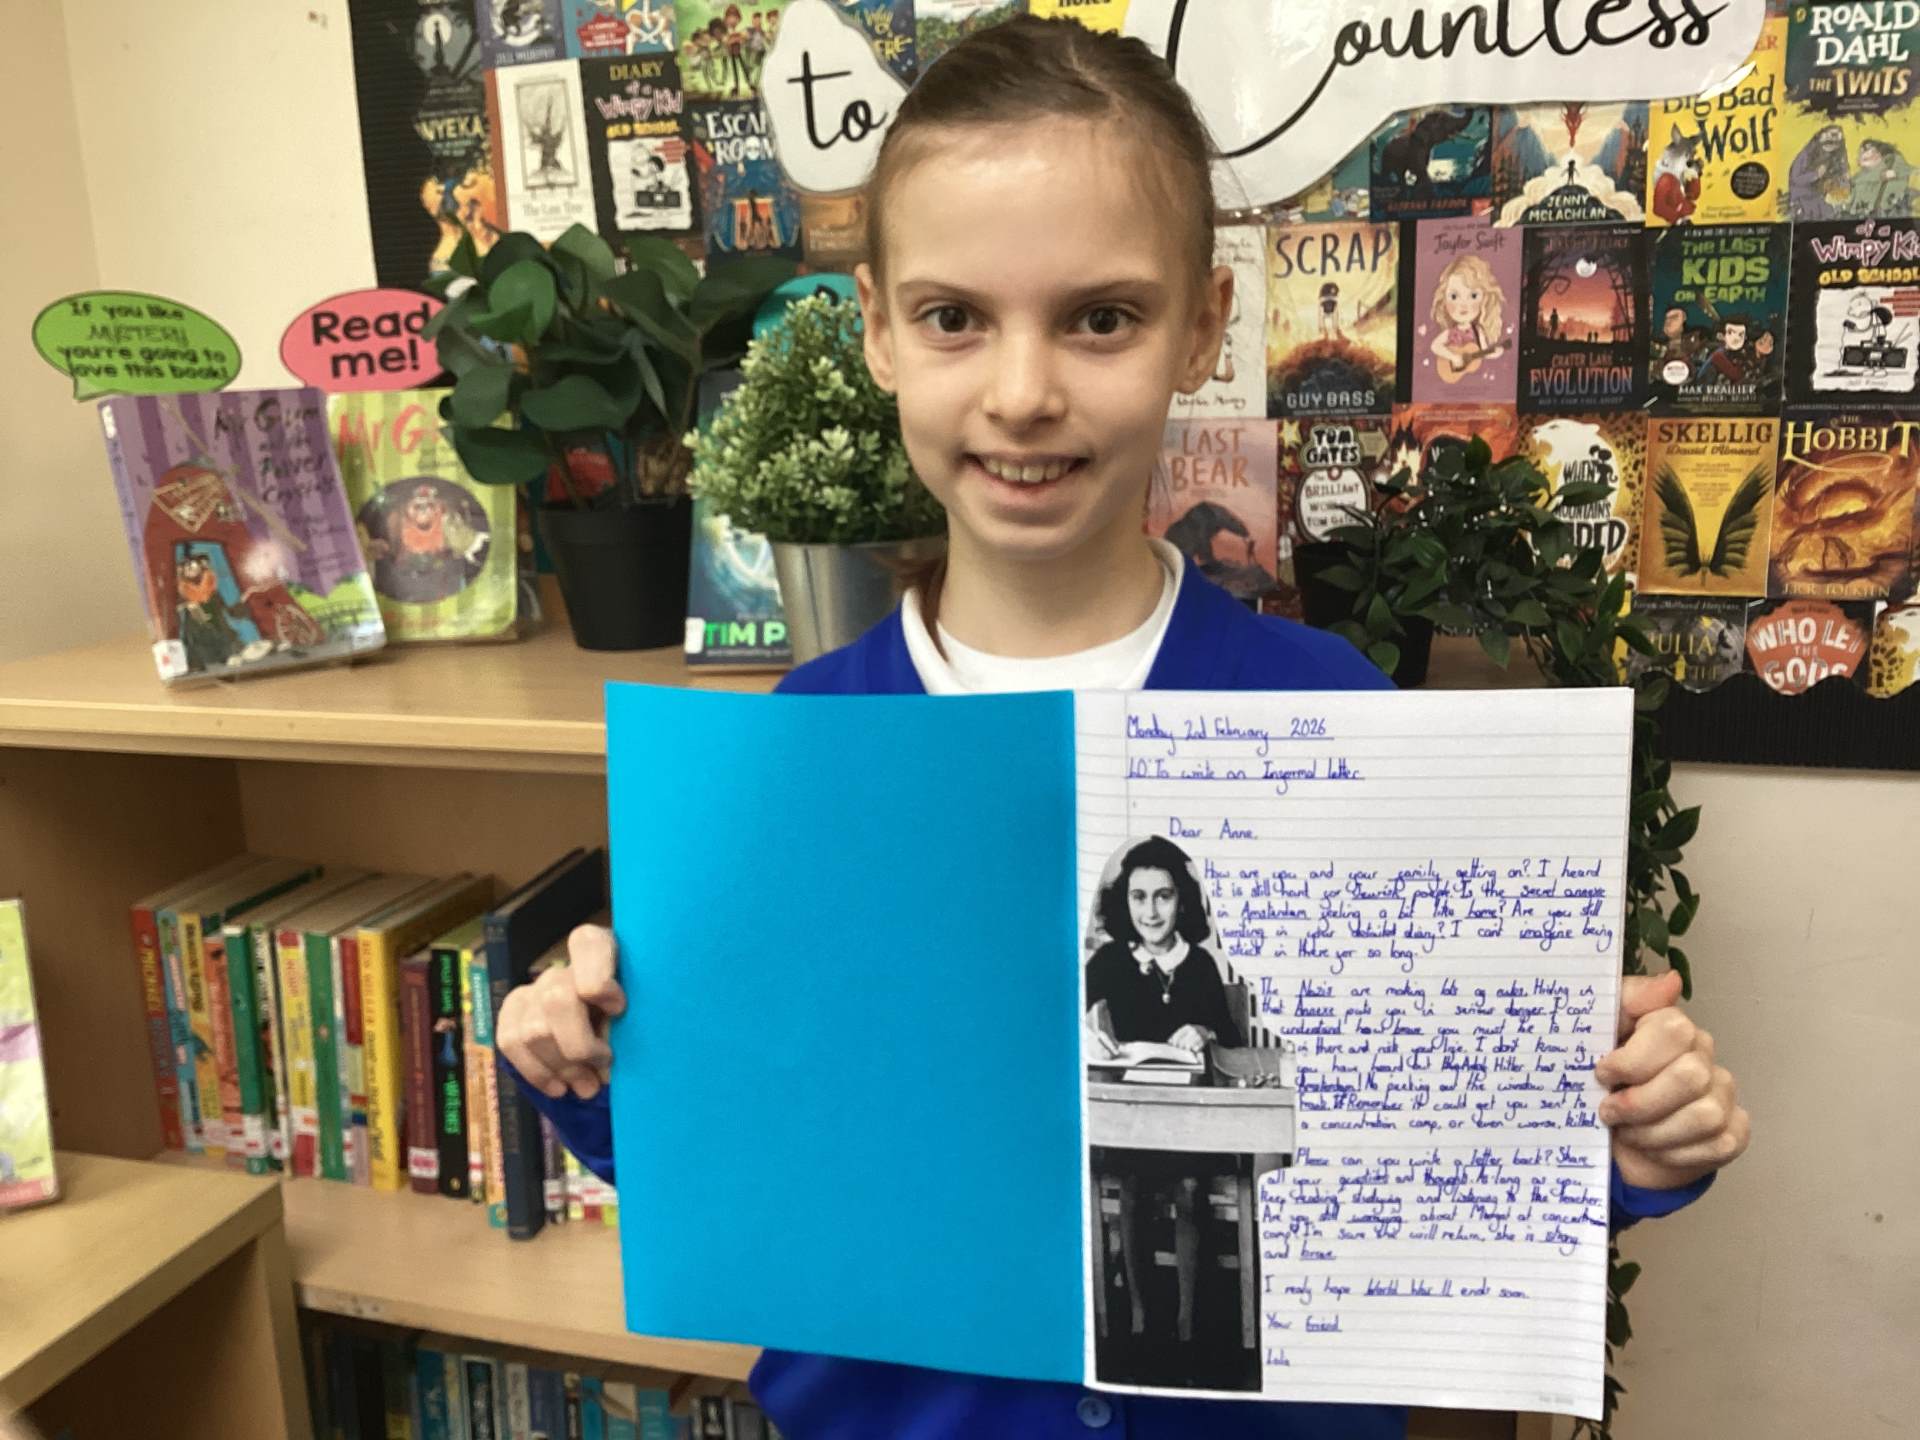 to Countless
DIARY
of a
Wimpy Kid
OLD SCHOOL
ROALD
DAHL
THE TWITS
Big Bad
Wolf
JENNY
MCLACHLAN
If you like
MYSTERY
you're going to
love this book!
Read
me!
SCRAP
GUY BASS
Taylor Swift
CRATER LAKE
EVOLUTION
THE LAST
KIDS
ON EARTH
MAX BRALLIER
of a
Wimpy Kid
OLD SCHOOL
LAST
BEAR
TOM
GATES
BRILLIANT
SKELLIG
David Almond
THE
HOBBIT
J.R.R. TOLKIEN
WHO LET
THE
GODS
TIM P
Monday 2nd February 2026
LO: To write an Informal letter
Dear Anne,
How are you and your family getting on? I heard
it is still hard for Jewish people. Is the secret annexe
in Amsterdam feeling a bit like home? Are you still
writing in your detailed diary? I can't imagine being
stuck in there for so long.
The Nazis are making lots of rules. Hiding in
that Annexe puts you in serious danger. I can't
understand how brave you must be to live
in there and risk your life. I don't know if
you have heard but Adolf Hitler has invaded
Amsterdam! No peeking out the window Anne
Frank. Remember it could get you sent to
a concentration camp, or even worse, killed.
Please can you write a letter back? Share
all your questions and thoughts. As long as you
keep reading, studying and listening to the teacher.
Are you still worrying about Margot at concentration
camp? I'm sure she will return, she is strong
and brave.
I really hope World War II ends soon.
Your friend
Lola